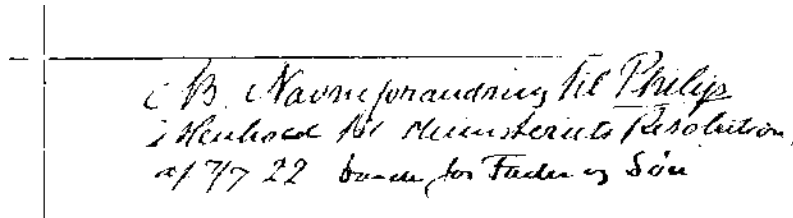 NB. Navneforandring til Philip
i Henhold til Ministeriets Resolution
af 7/7 22 baade for Fader og Søn